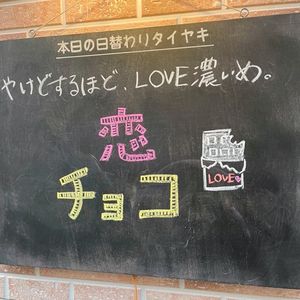 本日の日替わりタイヤキ
やけどするほど、LOVE濃いめ。
恋
チョコ
LOVE